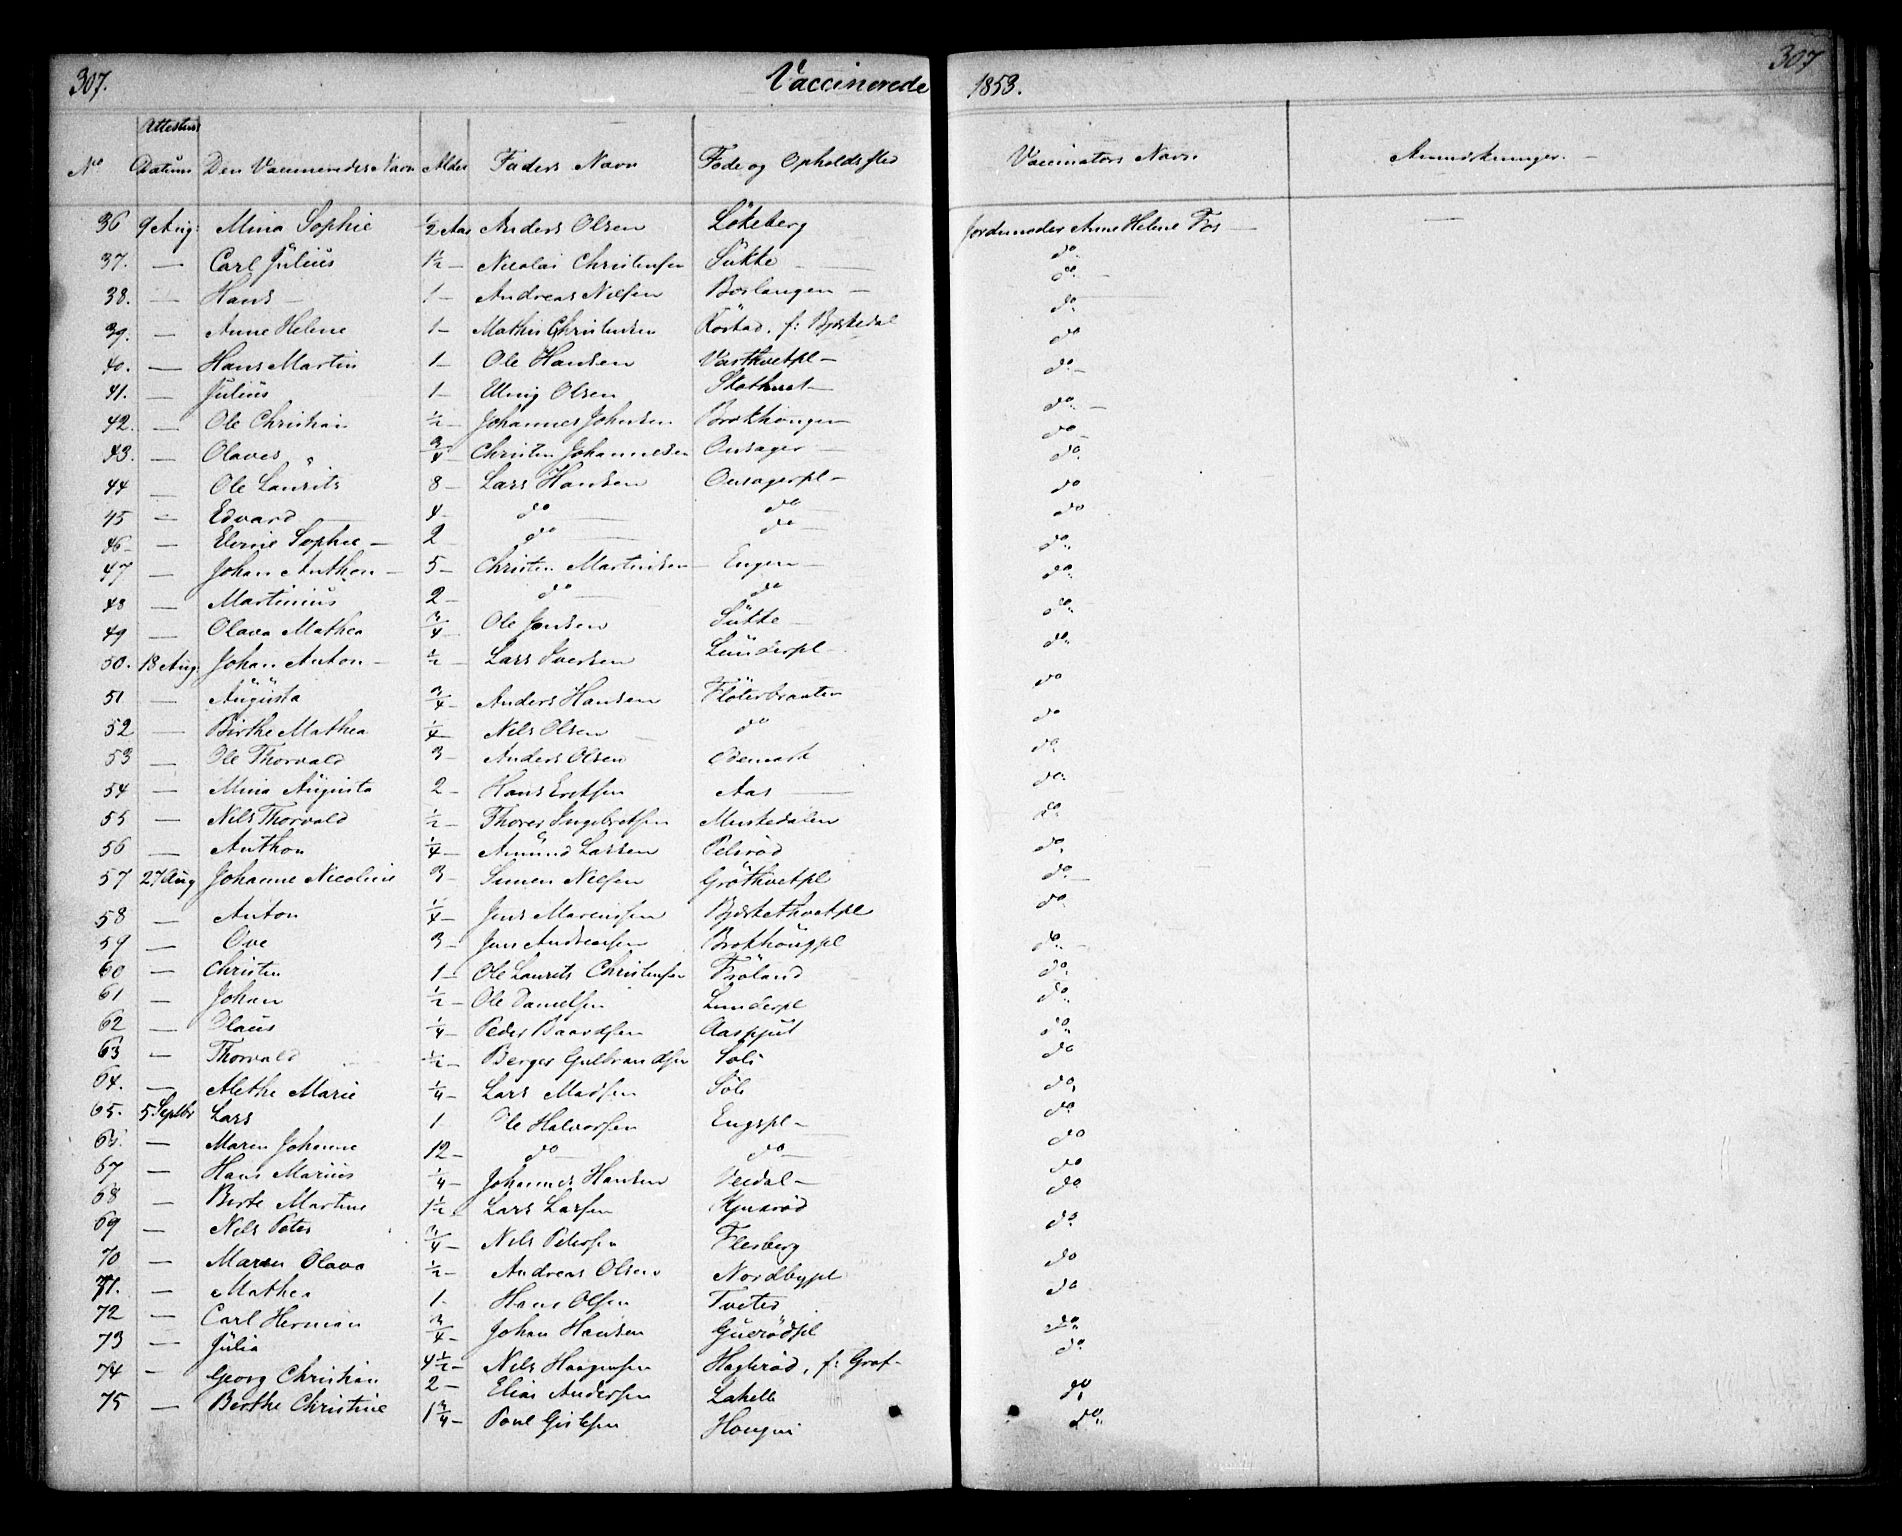 307. Vaccinerede 1853. 307
Attestens
No Datum Den Vaccineredes Navn Alder Faders Navn Føde og Opholdssted Vaccinators Navn Anmærkninger.
36 9 Aug: Mina Sophie ½ Aar Anders Olsen Lökeberg Jordemoder Anne Helene Fos —
37. — Carl Julius 1½ — Nicolai Christensen Sükke — do
38. — Hans — 1 — Andreas Nilsen Boslangen — do —
39. — Anne Helene 1 — Mathis Christensen Röstad, f: Bjørkedal do
40. — Hans Martin 1 — Ole Hansen Vasthvetpl — do
41. — Julius 1 — Elling Olsen Skathvet — do —
42. — Ole Christian ½ — Johannes Johnsen Brokhougen — do —
43. — Olaves ¾ — Christen Johannesen Ousager — do —
44 — Ole Laurits 8 — Lars Hansen Ousagerpl — do
45 — Edvard 4 — do — do do
46 — Elvine Sophie — 2 — do — do — do
47 — Johan Anthon — 5 — Christen Martinsen — Engen — do
48 — Martinius 2 — do — do do
49 — Olava Mathea ¾ — Ole Jensen Sükke — do
50. 18 Aug: Johan Anton — ½ — Lars Iversen Lünderpl — do
51 — Augusta ¾ — Anders Hansen Flöterbraaten do
52 — Birthe Mathea ¼ — Nils Olsen — do do
53 — Ole Thorvald 3 — Anders Olsen Odemark do
54 — Mina Augusta 2 — Hans Eretsen Aas — do
55 — Nils Thorvald ½ — Thorer Ingebretsen Mustedalen do
56 — Anthon ¼ — Amund Larsen Pelsröd do
57 27 Aug Johanne Nicoline 3 — Simen Nilsen Gröthvetpl do
58 — Anton ¼ — Jens Marenssen Bjørkethvetpl do
59 — Ove 3 — Jens Andreasen Brokhougpl do
60 — Christen 1 — Ole Laurits Christensen Fröland do
61 — Johan ½ — Ole Danielsen Lunderpl do
62 — Olaus ¼ — Peder Baardsen Aaspjut do
63 — Thorvald ½ — Berger Gulbrandsen Soli do
64. — Alethe Marie ¼ — Lars Madsen Söli do
65. 5 Septbr Lars 1 Ole Halvorsen Engspl — do
66. — Maren Johanne 12 — do — do — do
67 — Hans Marius ¼ — Johannes Hansen Veidal — do
68 — Birte Martine 1½ — Lars Larsen Kjusröd do
69 — Nils Peter ¾ — Nils Petersen Flesberg do
70 — Maren Olava ½ — Andreas Olsen Nordbypl do
71. — Mathea 1. Hans Olsen Tveter do
72 — Carl Herman ¾ — Johan Hansen Gueröd pl do
73 — Julia 4½ — Nils Haagensen Hagleröd, f: Graf — do
74 — Georg Christian 2 — Elias Andersen Lakelle do
75 — Berthe Christine 1¾ — Poul Gislesen Hougen do